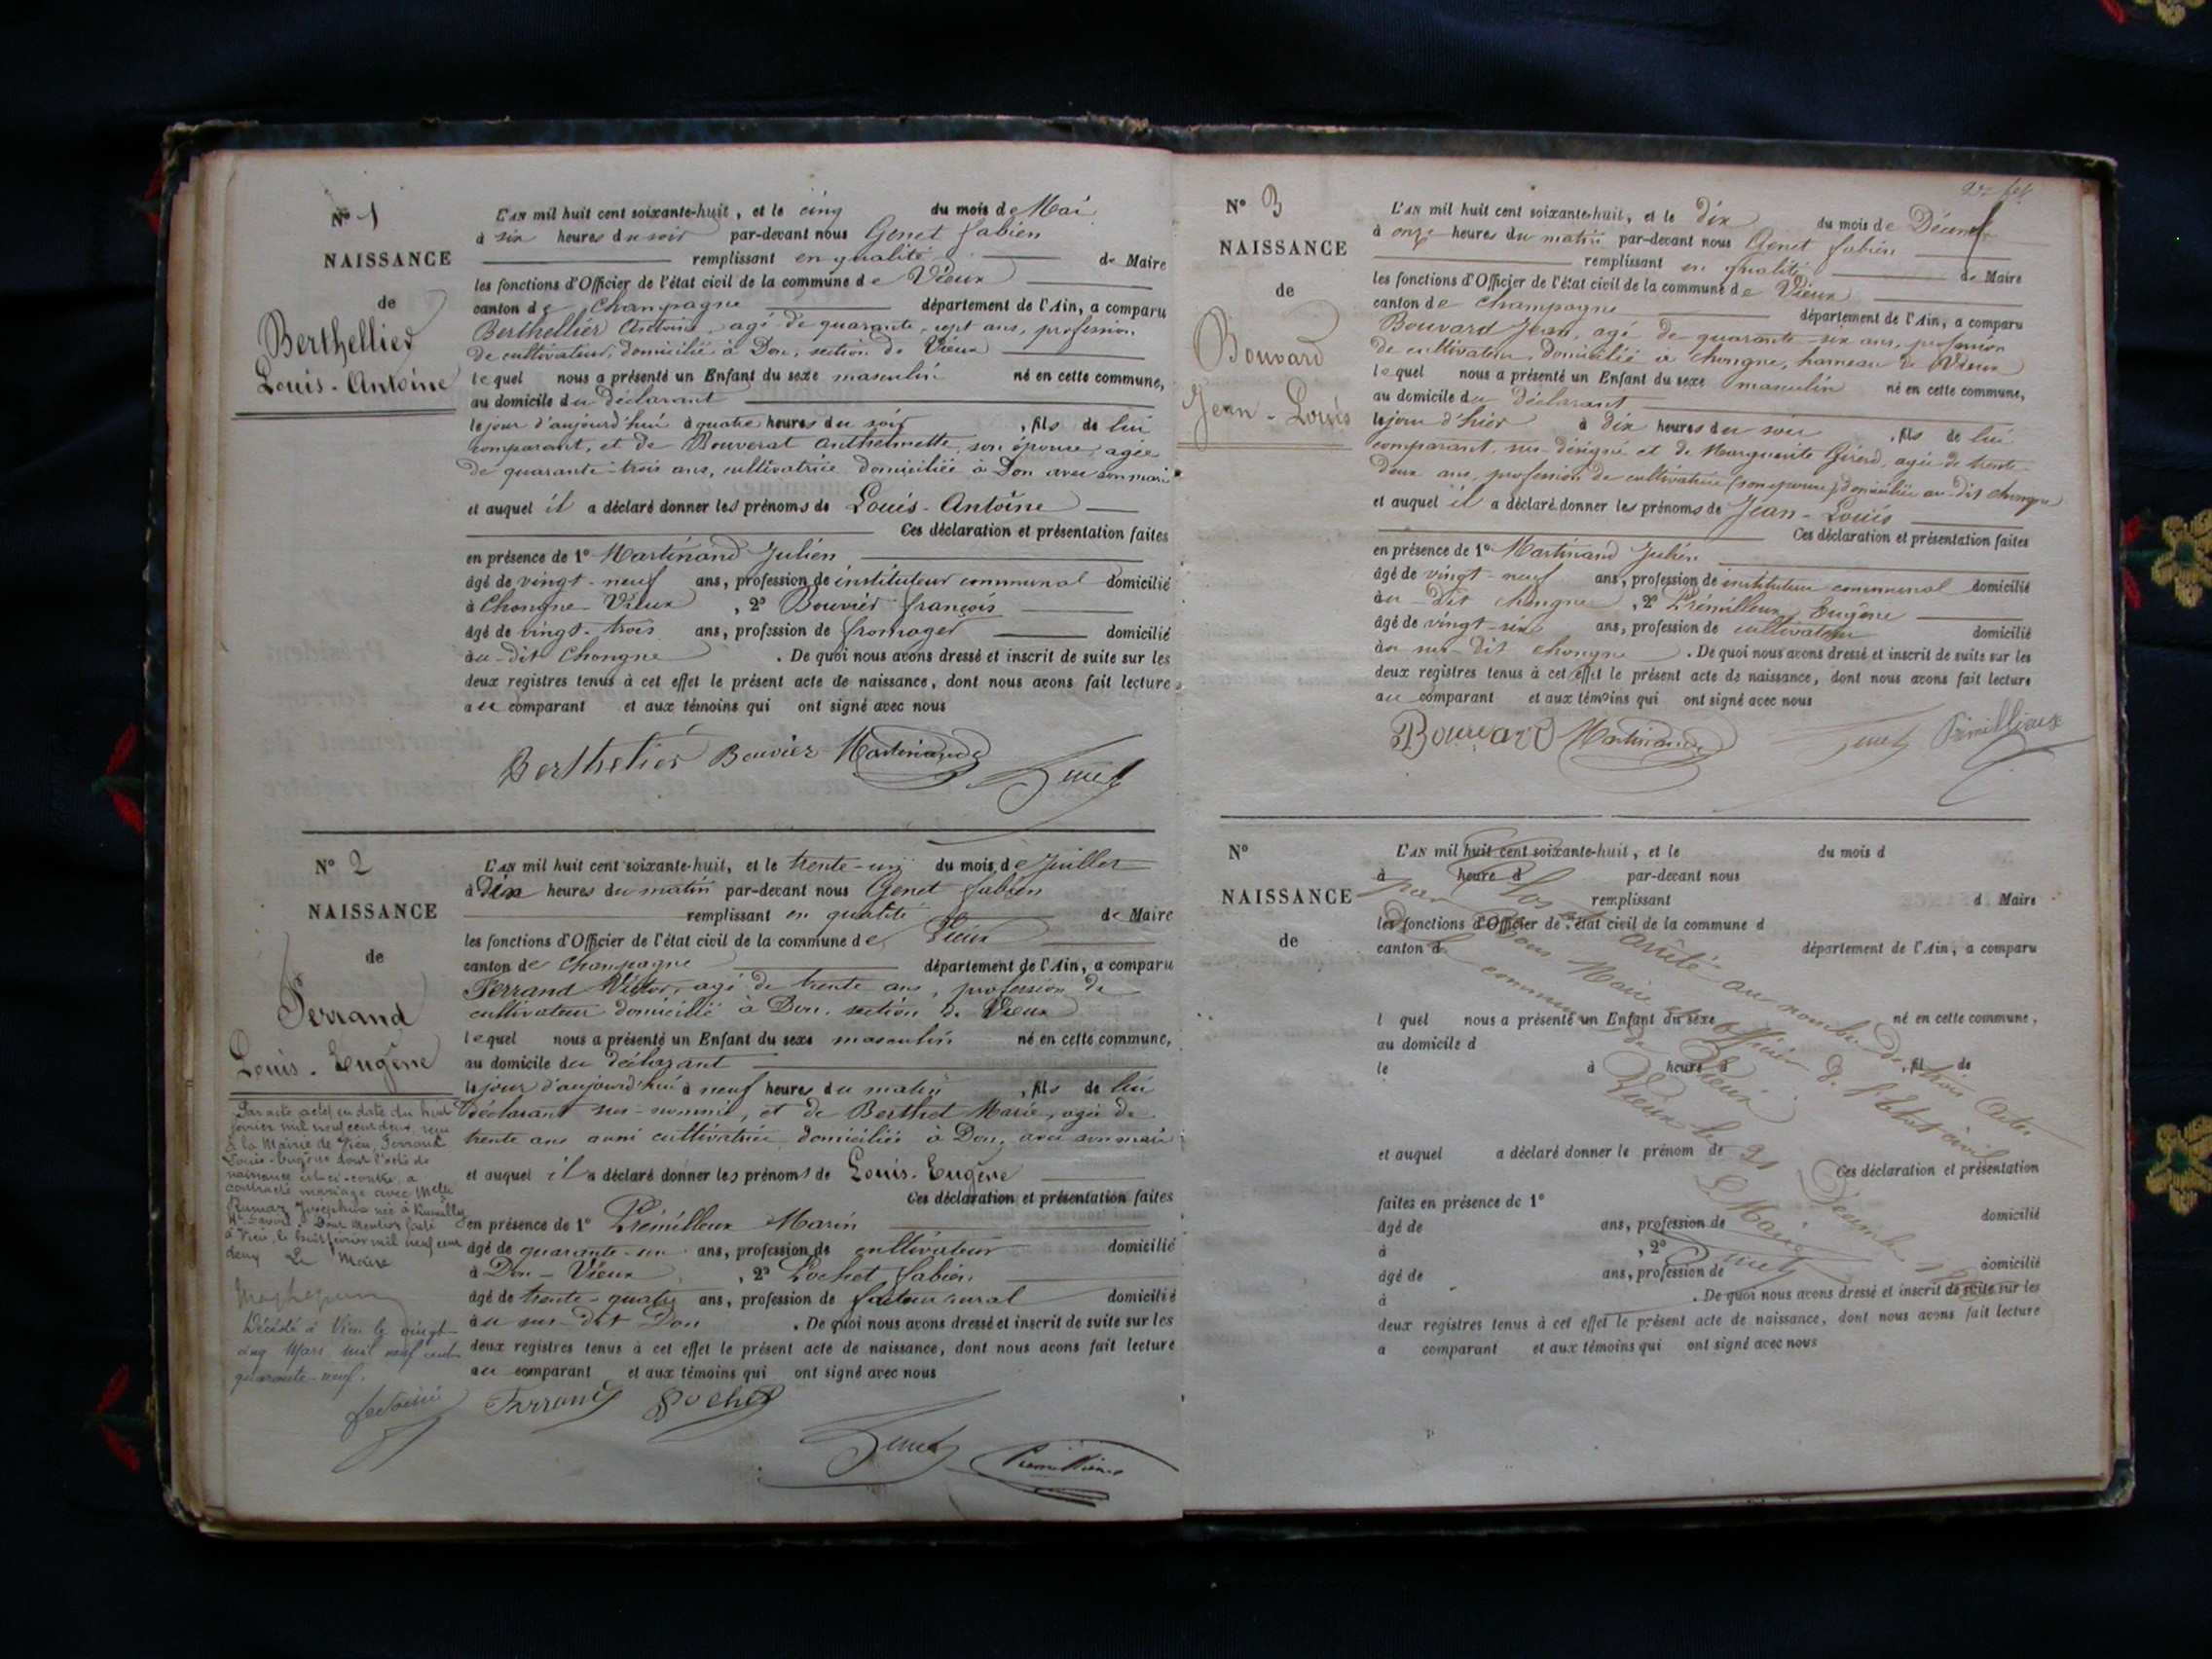 N° 1
NAISSANCE
de
Berthellier
Louis-Antoine
L'AN mil huit cent soixante-huit, et le cinq du mois de Mai
à six heures du soir par-devant nous Genet fabien
remplissant en qualité de Maire
les fonctions d'Officier de l'état civil de la commune de Vieux
canton de Champagne département de l'Ain, a comparu
Berthellier Antoine, agé de quarante-sept ans, profession
de cultivateur, domicilié à Don, section de Vieux
lequel nous a présenté un Enfant du sexe masculin né en cette commune,
au domicile du déclarant
le jour d'aujourd'hui à quatre heures du soir, fils de lui
comparant, et de Bouverat Anthelmette, son épouse, agée
de quarante-trois ans, cultivatrice domiciliée à Don avec son mari
et auquel il a déclaré donner les prénoms de Louis-Antoine
Ces déclaration et présentation faites
en présence de 1° Martinand Julien
âgé de vingt-neuf ans, profession de instituteur communal domicilié
à Chongne-Vieux, 2° Bouvier françois
âgé de vingt-trois ans, profession de fromager domicilié
au-dit Chongne. De quoi nous avons dressé et inscrit de suite sur les
deux registres tenus à cet effet le présent acte de naissance, dont nous avons fait lecture
au comparant et aux témoins qui ont signé avec nous
Berthelier Bouvier Martinand Genet
N° 2
NAISSANCE
de
Ferrand
Louis-Eugène
L'AN mil huit cent soixante-huit, et le trente-un du mois de Juillet
à Dix heures du matin par-devant nous Genet fabien
remplissant en qualité de Maire
les fonctions d'Officier de l'état civil de la commune de Vieux
canton de Champagne département de l'Ain, a comparu
Ferrand Victor, agé de trente ans, profession de
cultivateur domicilié à Don, section de Vieux
lequel nous a présenté un Enfant du sexe masculin né en cette commune,
au domicile du déclarant
le jour d'aujourd'hui à neuf heures du matin, fils de lui
déclarant sus-nommé, et de Berthet Marie, agée de
trente ans aussi cultivatrice, domiciliée à Don, avec son mari
et auquel il a déclaré donner les prénoms de Louis-Eugène
Ces déclaration et présentation faites
en présence de 1° Prémilleux Marin
âgé de quarante-un ans, profession de cultivateur domicilié
à Don-Vieux, 2° Lochet fabien
âgé de trente-quatre ans, profession de facteur rural domicilié
au sus-dit Don. De quoi nous avons dressé et inscrit de suite sur les
deux registres tenus à cet effet le présent acte de naissance, dont nous avons fait lecture
au comparant et aux témoins qui ont signé avec nous
Ferrand Lochet
Genet Premillieux
Par acte en date du huit
février mil neuf cent deux, reçu
à la Mairie de Vieu, Ferrand
Louis-Eugène dont l'acte de
naissance est ci-contre, a
contracté mariage avec Melle
Joséphine née à Rumilly
Hte Savoie. Dont mention faite
à Vieu, le huit février mil neuf cent
deux Le Maire
Décédé à Vieu le vingt
cinq Mars mil neuf cent
quarante-neuf.
N° 3
NAISSANCE
de
Bouvard
Jean-Louis
L'AN mil huit cent soixante-huit, et le dix du mois de Décembre
à onze heures du matin par-devant nous Genet fabien
remplissant en qualité de Maire
les fonctions d'Officier de l'état civil de la commune de Vieux
canton de Champagne département de l'Ain, a comparu
Bouvard Jean, agé de quarante-six ans, profession
de cultivateur, domicilié à Chongne, hameau de Vieux
lequel nous a présenté un Enfant du sexe masculin né en cette commune,
au domicile du Déclarant
le jour d'hier à dix heures du soir, fils de lui
comparant, sus-désigné et de Marguerite Girerd, agée de trente
deux ans, profession de cultivatrice (son épouse) domiciliée au-dit Chongne
et auquel il a déclaré donner les prénoms de Jean-Louis
Ces déclaration et présentation faites
en présence de 1° Martinand Julien
âgé de vingt-neuf ans, profession de instituteur communal domicilié
au-dit Chongne, 2° Prémilleux Eugène
âgé de vingt-six ans, profession de cultivateur domicilié
au sus-dit Chongne. De quoi nous avons dressé et inscrit de suite sur les
deux registres tenus à cet effet le présent acte de naissance, dont nous avons fait lecture
au comparant et aux témoins qui ont signé avec nous
Bouvard Martinand Genet Prémillieux
N°
NAISSANCE
de
L'AN mil huit cent soixante-huit, et le du mois d
à heure d par-devant nous
remplissant d Maire
les fonctions d'Officier de l'état civil de la commune d
canton d département de l'Ain, a comparu
l quel nous a présenté un Enfant du sexe né en cette commune,
au domicile d
le à heure d , fil de
et auquel a déclaré donner le prénom de
Ces déclaration et présentation
faites en présence de 1°
âgé de ans, profession de domicilié
à , 2°
âgé de ans, profession de domicilié
à . De quoi nous avons dressé et inscrit de suite sur les
deux registres tenus à cet effet le présent acte de naissance, dont nous avons fait lecture
a comparant et aux témoins qui ont signé avec nous
Clos et arrêté au nombre de trois actes
par Nous Maire et Officier de l'Etat civil
de la commune de Vieux
Vieux le 31 Décembre
Le Maire
Genet